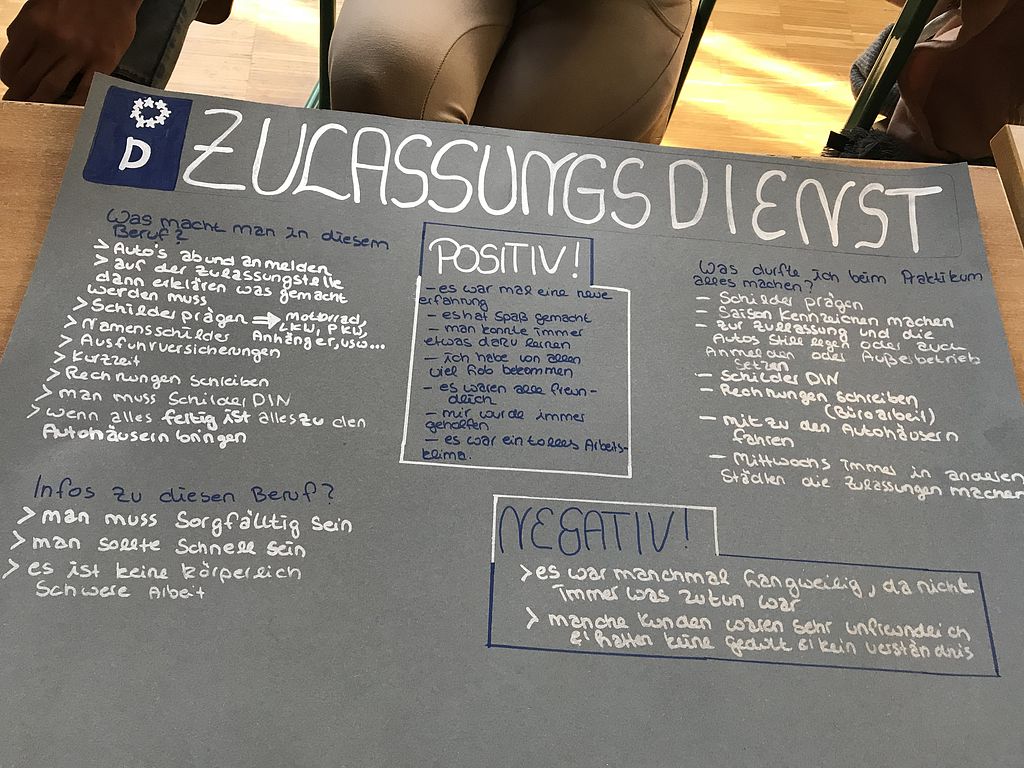 D
ZULASSUNGSDIENST
Was macht man in diesem
Beruf?
> Auto's ab und anmelden
> auf der Zulassungstelle
dann erklären was gemacht
werden muss
> Schilder prägen ⇒ motorrad,
LKW, PKW,
Anhänger, usw...
> Namensschilder
> Ausfuhrversicherungen
> Kurzzeit
> Rechnungen schreiben
> man muss Schilder DIN
> wenn alles fertig ist alles zu den
Autohäusern bringen
Infos zu diesen Beruf?
> man muss Sorgfälltig sein
> man sollte Schnell sein
> es ist keine körperlich
Schwere Arbeit
POSITIV!
- es war mal eine neue
erfahrung
- es hat Spaß gemacht
- man konnte immer
etwas dazu lernen
- ich habe von allen
viel lob bekommen
- es waren alle freun-
dlich
- mir wurde immer
geholfen
- es war ein tolles Arbeits-
klima.
Was durfte ich beim Praktikum
alles machen?
- Schilder prägen
- Saison Kennzeichen machen
- zur Zulassung und die
Autos still legen oder auch
Anmelden oder Außebetrieb
setzen
- Schilder DIN
- Rechnungen schreiben
(Büroarbeit)
- mit zu den Autohäusern
fahren
- Mittwochs immer in anderen
Städten die Zulassungen machen
NEGATIV!
> es war manchmal langweilig, da nicht
immer was zu tun war
> manche Kunden waren sehr unfreundlich
& hatten keine gedult & kein verständnis